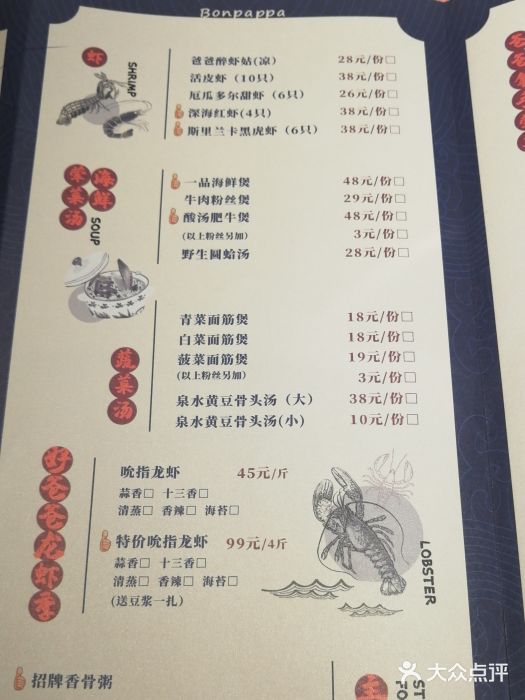 Bonpappa
虾
SHRIMP
爸爸醉虾姑(凉) 28元/份□
活皮虾（10只） 38元/份□
厄瓜多尔甜虾（6只） 26元/份□
深海红虾(4只) 38元/份□
斯里兰卡黑虎虾（6只） 38元/份□
海鲜
荤菜汤
SOUP
一品海鲜煲 48元/份□
牛肉粉丝煲 29元/份□
酸汤肥牛煲 48元/份□
(以上粉丝另加) 3元/份□
野生圆蛤汤 28元/份□
蔬菜汤
青菜面筋煲 18元/份□
白菜面筋煲 18元/份□
菠菜面筋煲 19元/份□
(以上粉丝另加) 3元/份□
泉水黄豆骨头汤（大） 38元/份□
泉水黄豆骨头汤(小) 10元/份□
好爸爸龙虾季
吮指龙虾 45元/斤
蒜香□ 十三香□
清蒸□ 香辣□ 海苔□
特价吮指龙虾 99元/4斤
蒜香□ 十三香□
清蒸□ 香辣□ 海苔□
(送豆浆一扎)
LOBSTER
招牌香骨粥
主
ST
FO
大众点评